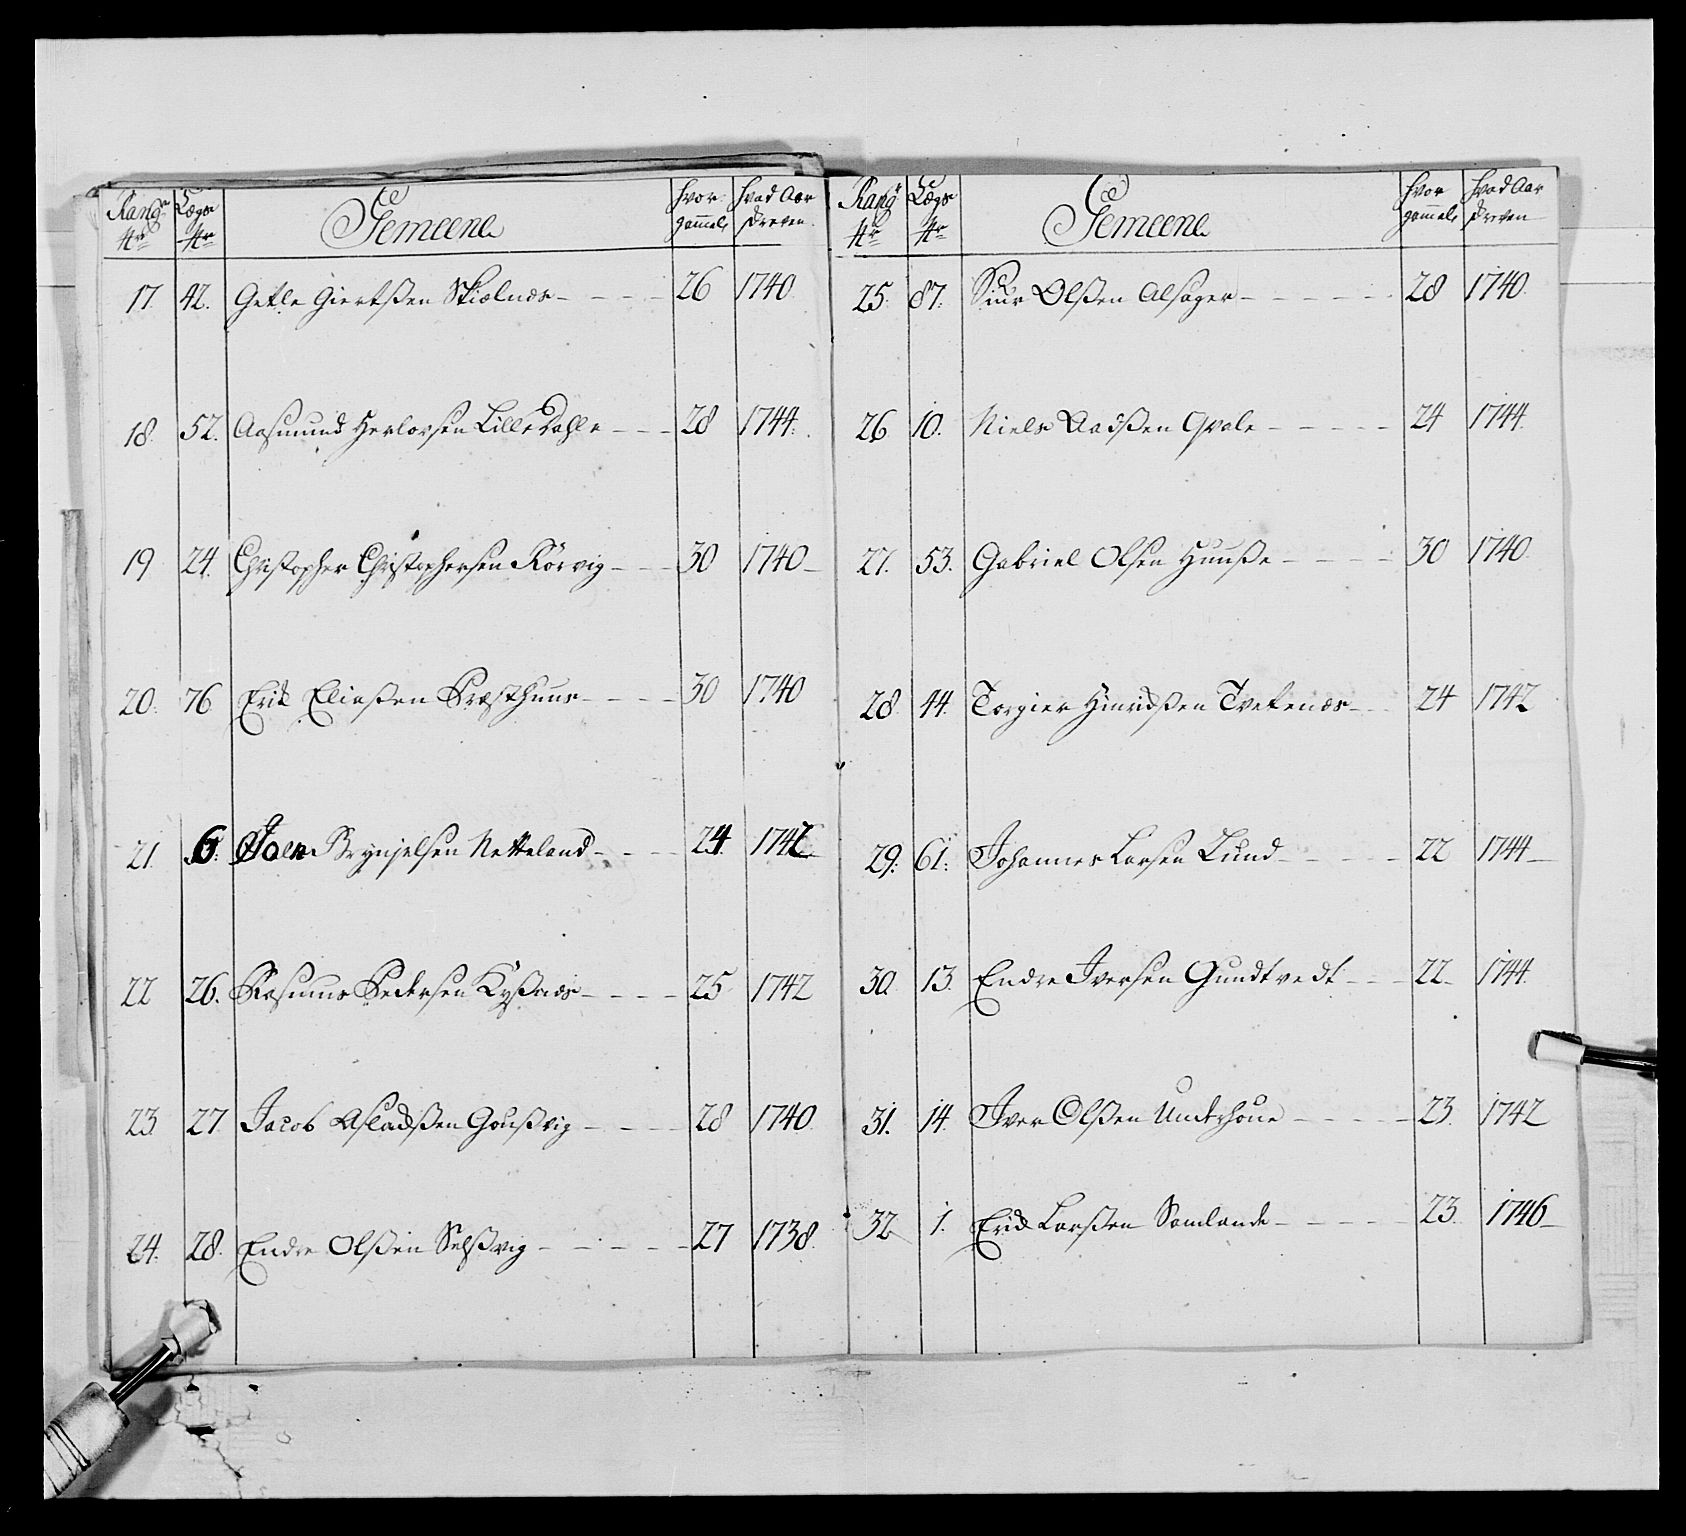 Rang Nr Lægs Nr Gemeene hvor gammel hvad Aar Dreven
17. 42. Getle Giertßen Skiælnæs 26 1740
18. 52. Aasmund Herlorsen Lille Dahle 28 1744.
19 24. Christopher Christophersen Rörvig 30 1740
20. 76 Erik Eliaßen Præsthuus 30 1740
21. 6 Joen Brynjelsen Netteland 24 1742
22 26. Rasmus Pedersen Kyßnæs 25 1742
23. 27 Jacob Asladßen Goußvig 28 1740.
24. 28. Endre Olßen Selßvig 27 1738.
Rang Nr Lægs Nr Gemeene hvor gammel hvad Aar Dreven
25. 87. Siur Olßen Alsager 28 1740.
26 10. Niels Aadßen Qvale 24 1744.
27. 53. Gabriel Olsen Huuße 30 1740.
28. 44. Torgier Hinridßen Tvetenæs 24 1742
29. 61. Johannes Larsen Lund 22 1744
30. 13. Endre Iversen Gundtvedt 22 1744.
31. 14. Iver Olßen Underhoue 23. 1742
32 1. Erik Larßen Samlande 23. 1746